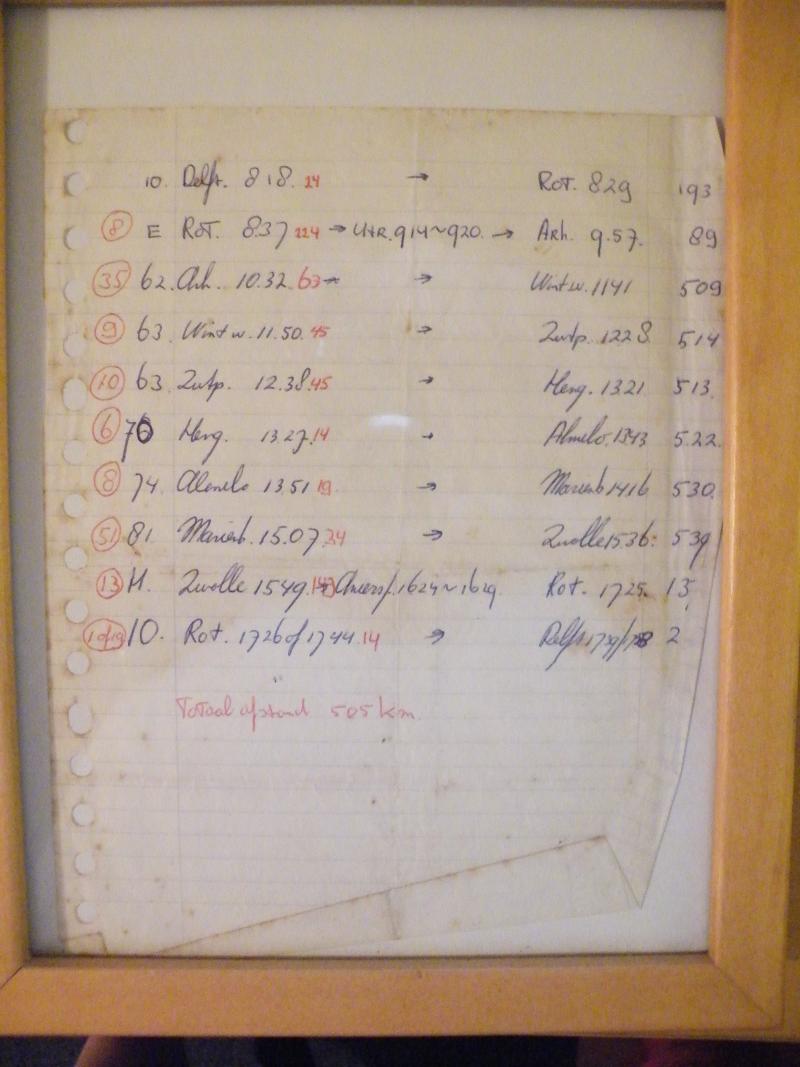 10. Delft. 818. 14 → Rot. 829 193
8 E Rot. 837 224 → Utr. 914~920. → Arh. 9.57. 89
35 62. Arh. 10.32. 63 → Wintw. 1141 509
9 63. Wintw. 11.50. 45 → Zutp. 1228 514
10 63. Zutp. 12.38. 45 → Heng. 1321 513.
6 76 Heng. 13.27. 14 → Almelo. 1343 522.
8 74. Almelo 13.51 19. → Marienb 1416 530.
51 81. Marienb. 15.07. 24 → Zwolle 1536. 539
13 H. Zwolle 1549. → Amersf. 1624~1629. Rot. 1725. 13
1 of 19 10. Rot. 1726 of 1744. 14 → Delft 2
Totaal afstand 505 km.